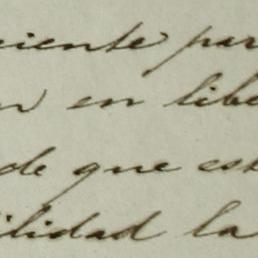 ciente par
n en libe
de que est
ilidad la